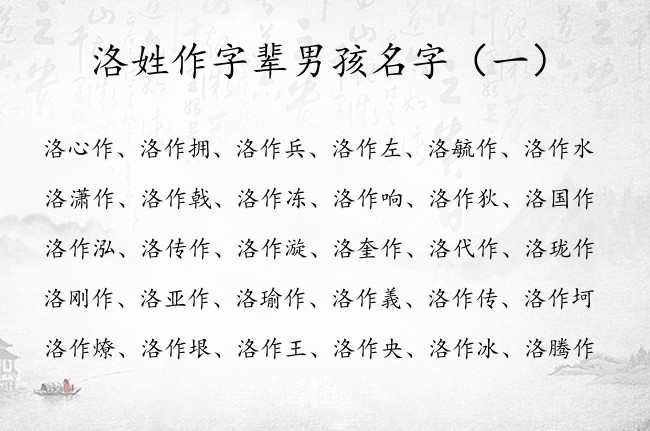 洛姓作字辈男孩名字（一）
洛心作、洛作拥、洛作兵、洛作左、洛毓作、洛作水
洛潇作、洛作戟、洛作冻、洛作响、洛作狄、洛国作
洛作泓、洛传作、洛作漩、洛奎作、洛代作、洛珑作
洛刚作、洛亚作、洛瑜作、洛作義、洛作传、洛作坷
洛作燎、洛作垠、洛作王、洛作央、洛作冰、洛腾作